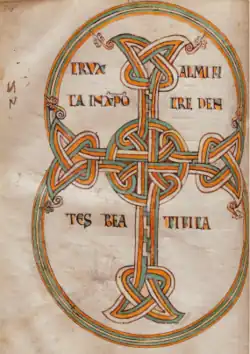 CRVX ALMIFI
CA IN XP̅O CREDEN
TES BEA TIFICA